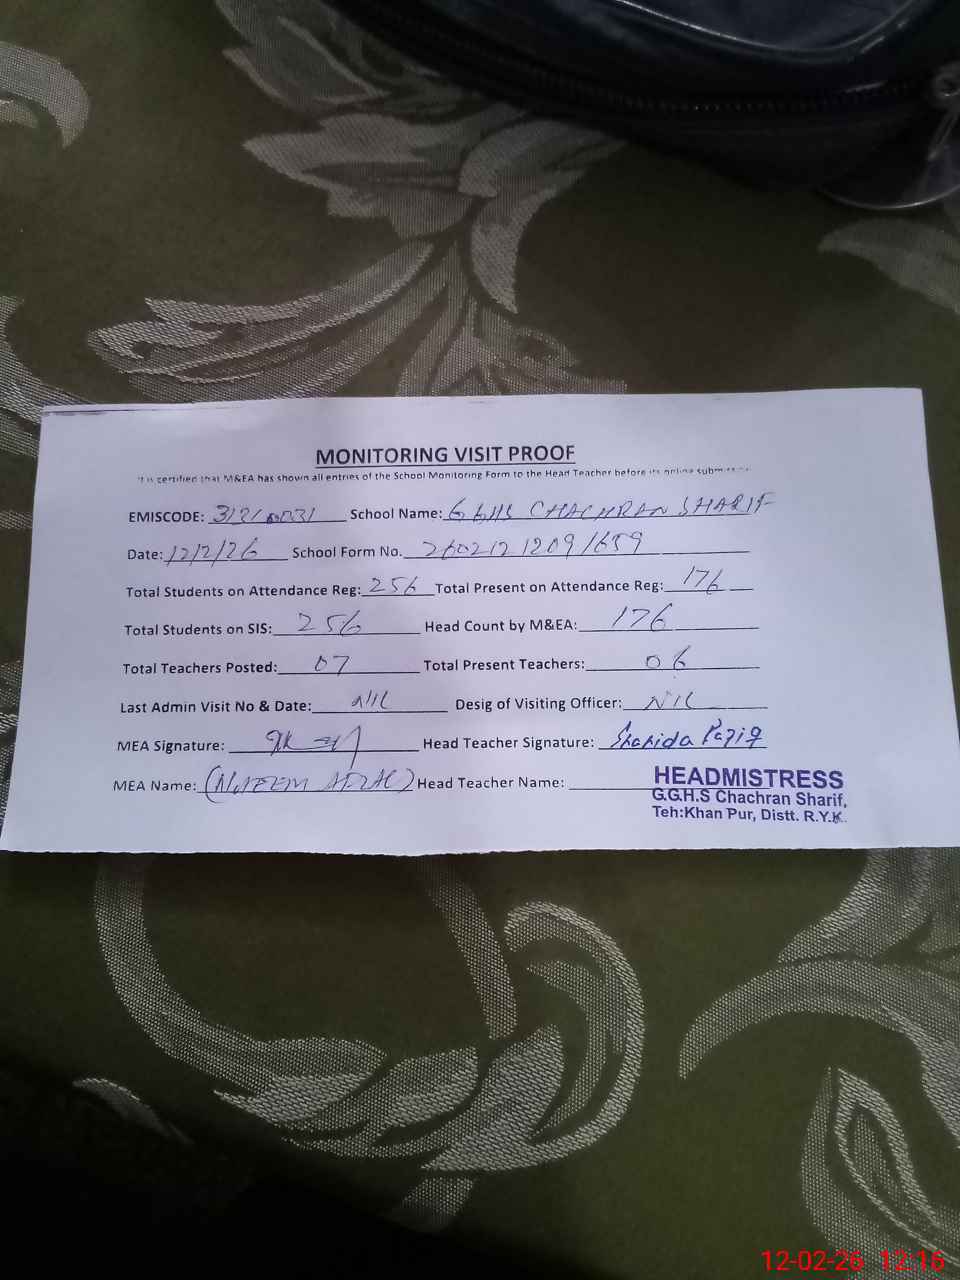 MONITORING VISIT PROOF
It is certified that M&EA has shown all entries of the School Monitoring Form to the Head Teacher before its online submission.
EMISCODE: School Name: GGHS CHACHRAN SHARIF
Date: 12/2/26 School Form No. 260212 1209 1659
Total Students on Attendance Reg: 256 Total Present on Attendance Reg: 176
Total Students on SIS: 256 Head Count by M&EA: 176
Total Teachers Posted: 07 Total Present Teachers: 06
Last Admin Visit No & Date: NIL Desig of Visiting Officer: NIL
MEA Signature: Head Teacher Signature: Shahida
MEA Name: Head Teacher Name:
HEADMISTRESS
G.G.H.S Chachran Sharif,
Teh:Khan Pur, Distt. R.Y.K.
12-02-26 12:16